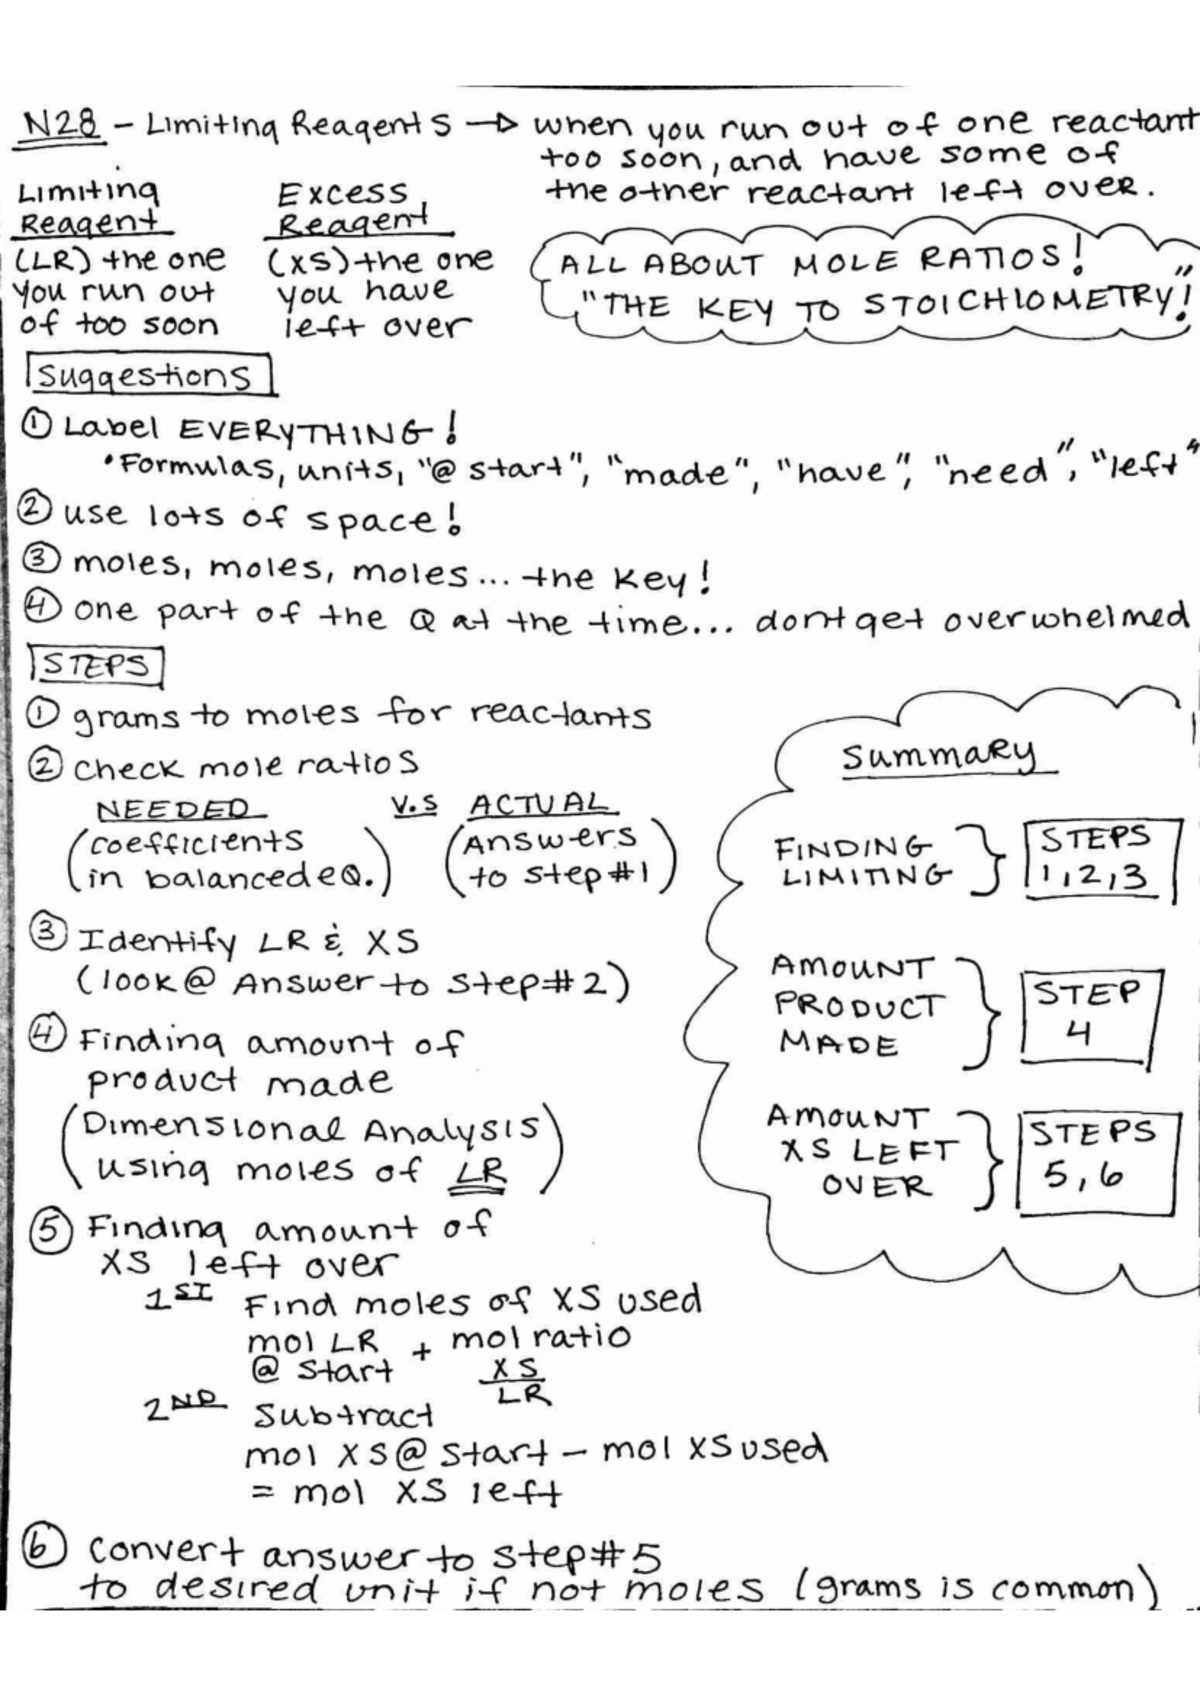 N28 - Limiting Reagents → when you run out of one reactant
too soon, and have some of
the other reactant left over.
Limiting Reagent
(LR) the one
you run out
of too soon
Excess Reagent
(XS) the one
you have
left over
ALL ABOUT MOLE RATIOS!
"THE KEY TO STOICHIOMETRY!"
Suggestions
① Label EVERYTHING!
• Formulas, units, "@ start", "made", "have", "need", "left"
② use lots of space!
③ moles, moles, moles... the key!
④ one part of the Q at the time... dont get overwhelmed
STEPS
① grams to moles for reactants
② check mole ratios
NEEDED v.s ACTUAL
(coefficients
in balanced eQ.)
(Answers
to step #1)
③ Identify LR & XS
(look @ Answer to step #2)
④ Finding amount of
product made
(Dimensional Analysis
using moles of LR)
⑤ Finding amount of
XS left over
1ST Find moles of XS used
mol LR + mol ratio
@ start XS
LR
2ND Subtract
mol XS @ start - mol XS used
= mol XS left
⑥ convert answer to step #5
to desired unit if not moles (grams is common)
Summary
FINDING
LIMITING
} STEPS
1,2,3
AMOUNT
PRODUCT
MADE
} STEP
4
AMOUNT
XS LEFT
OVER
} STEPS
5,6